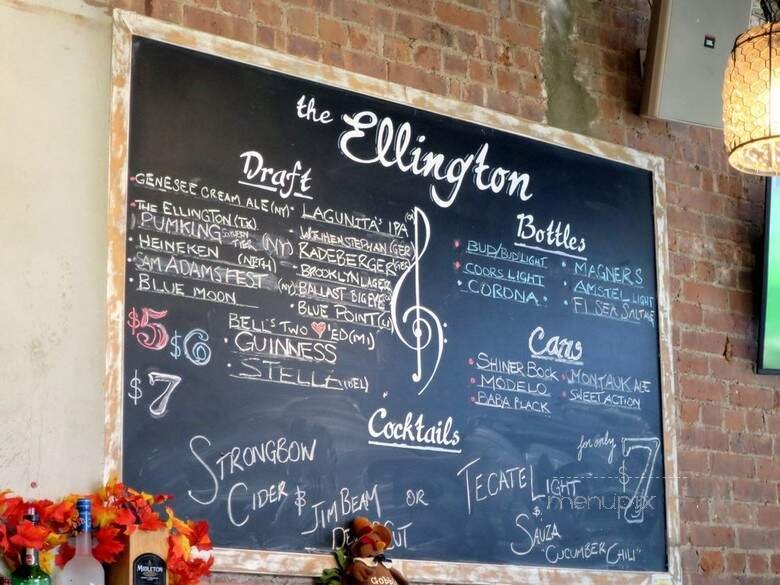 the Ellington
Draft
GENESEE CREAM ALE (NY)
THE ELLINGTON (TX)
PUMKING (NY)
HEINEKEN (NETH)
SAM ADAMS FEST
BLUE MOON
LAGUNITA'S IPA
WEIHENSTEPHAN (GER)
RADEBERGER (GER)
BROOKLYN LAGER
(NY) BALLAST BIG EYE
BLUE POINT
BELL'S TWO ♥'ED (MI)
GUINNESS
STELLA (BEL)
$5
$6
$7
Bottles
BUD/BUD LIGHT
COORS LIGHT
CORONA
MAGNERS
AMSTEL LIGHT
Cans
SHINER BOCK
MODELO
BABA BLACK
MONTAUK ALE
SWEET ACTION
Cocktails
STRONGBOW
CIDER &
JIM BEAM OR
for only
$7
TECATE LIGHT
&
SAUZA
"CUCUMBER CHILI"
menupix
MIDLETON